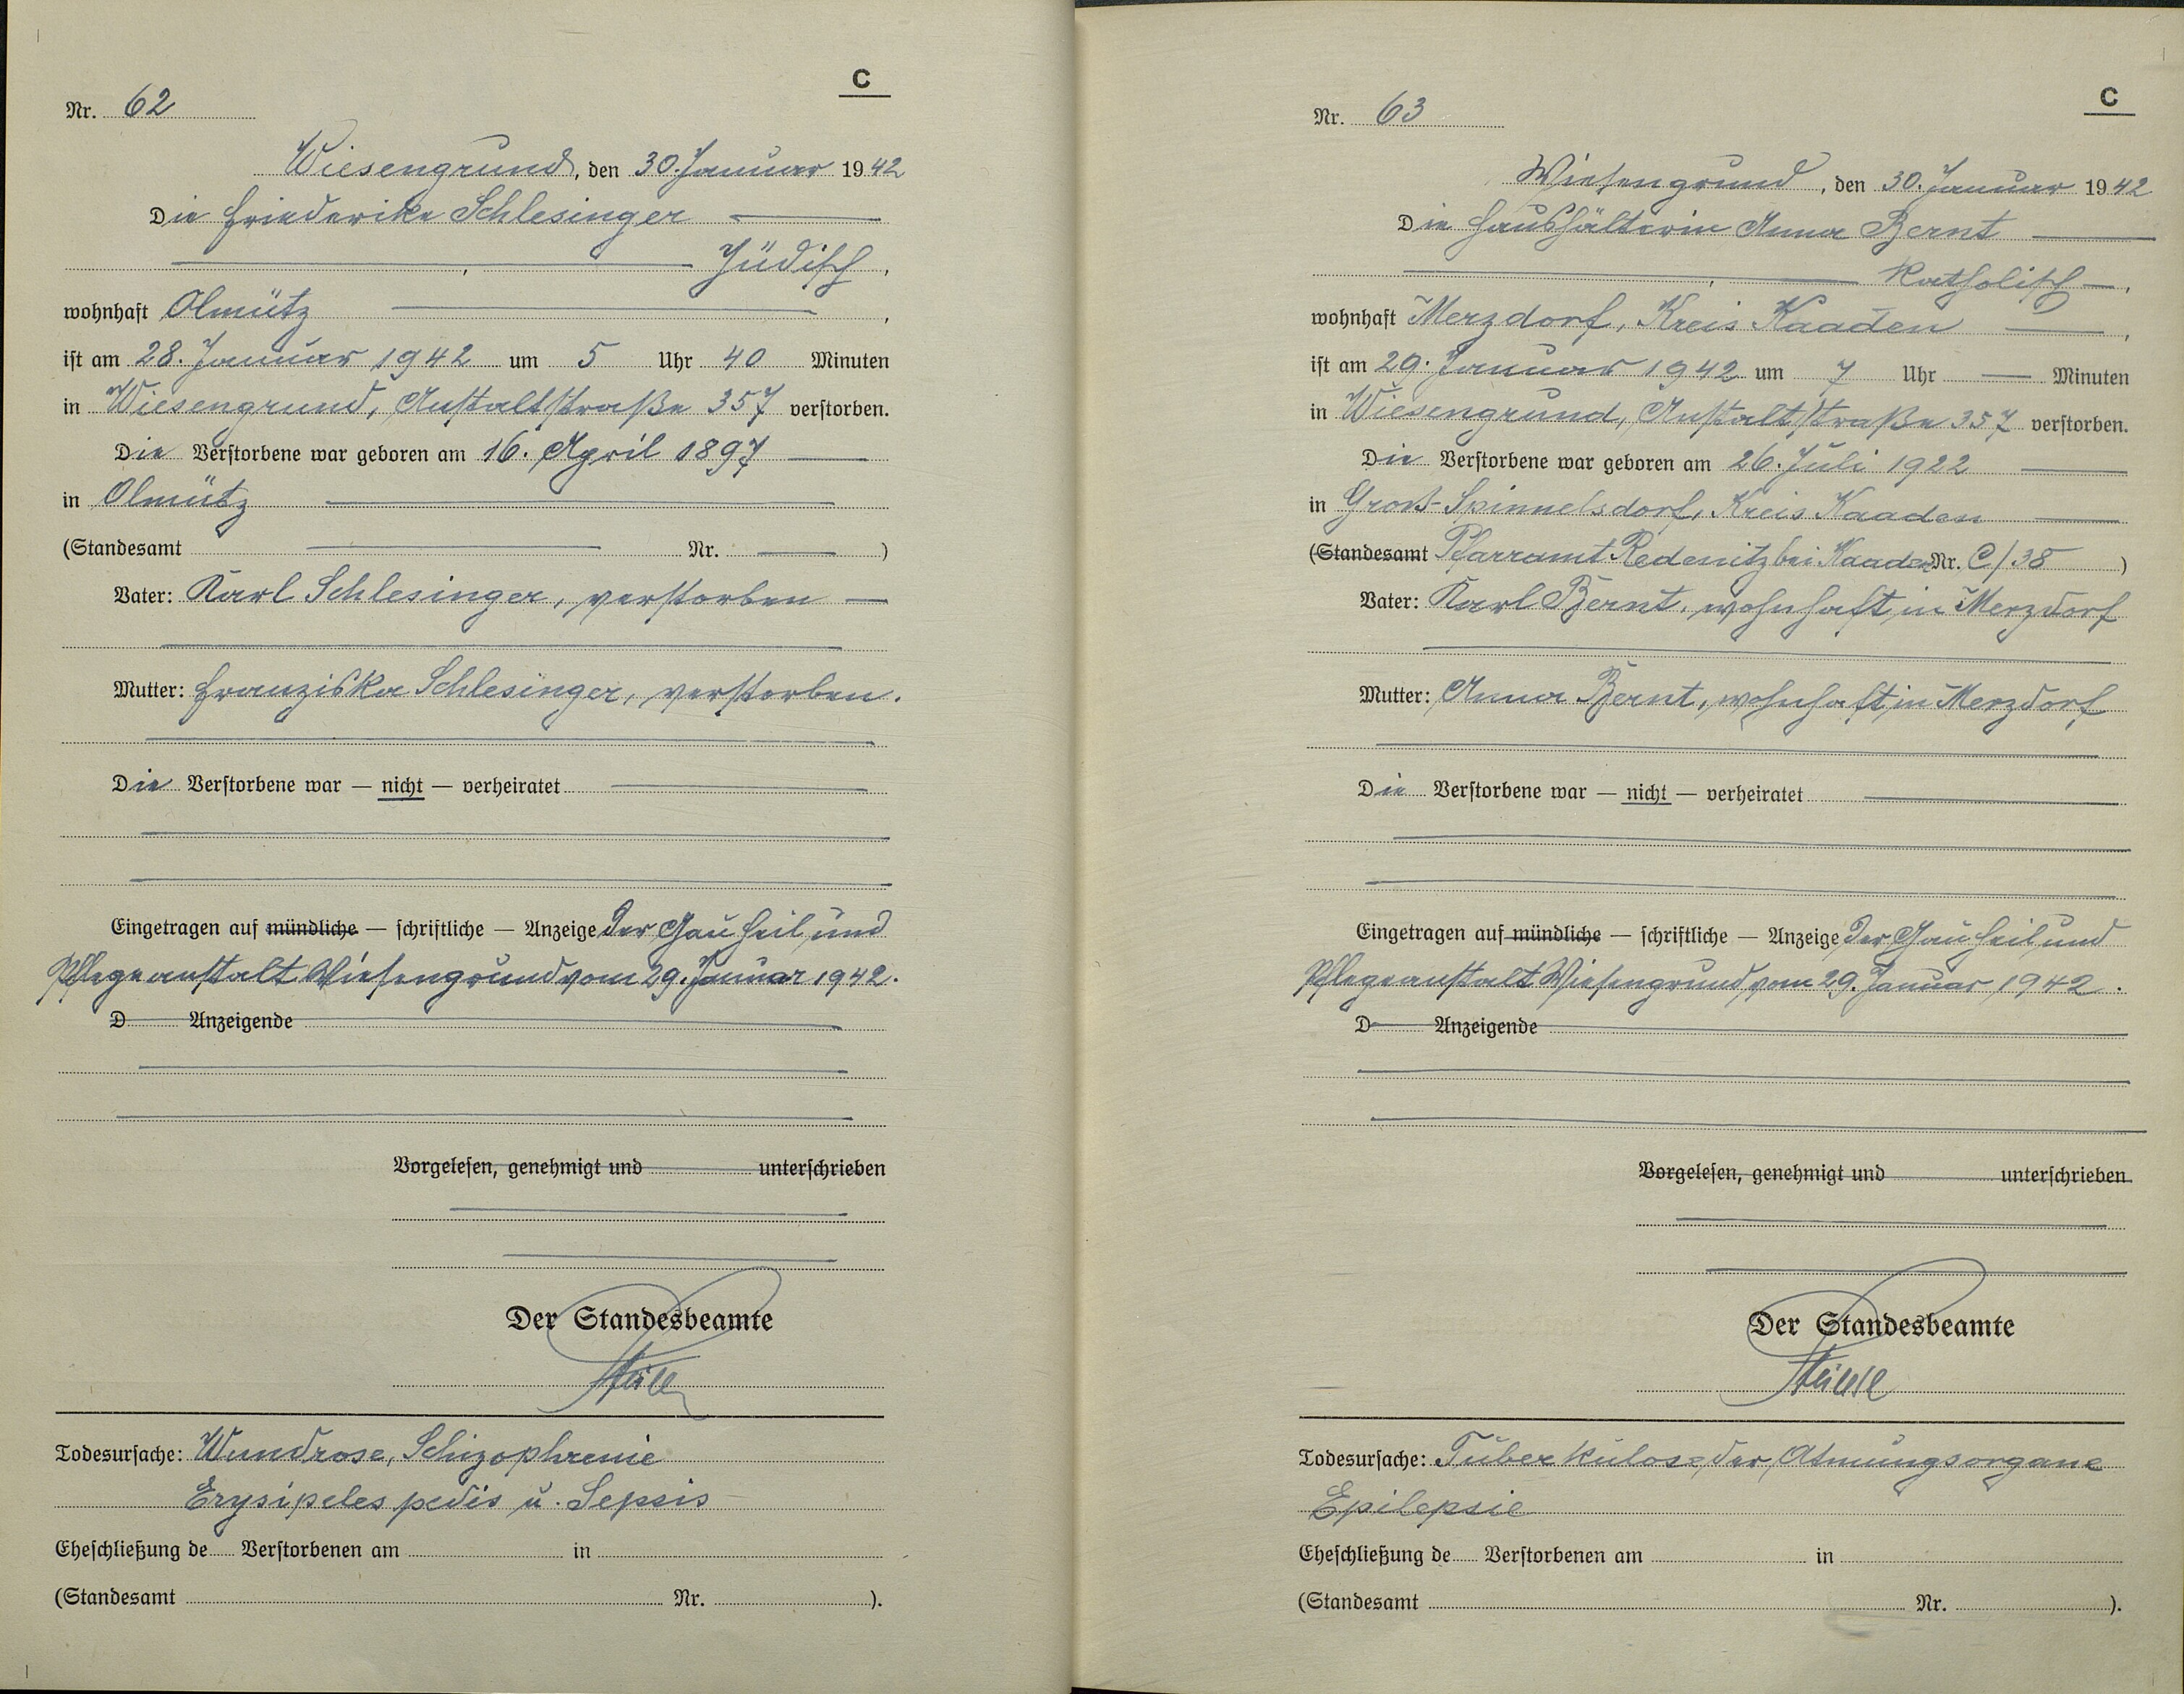 C
Nr. 62
Wiesengrund, den 30. Januar 1942
Die Friederike Schlesinger
Jüdisch,
wohnhaft Olmütz,
ist am 28. Januar 1942 um 5 Uhr 40 Minuten
in Wiesengrund, Anstaltstraße 357 verstorben.
Die Verstorbene war geboren am 16. April 1897
in Olmütz
(Standesamt Nr. )
Vater: Karl Schlesinger, verstorben
Mutter: Franziska Schlesinger, verstorben.
Die Verstorbene war — nicht — verheiratet
Eingetragen auf mündliche — schriftliche — Anzeige der Gau Heil und
Pflegeanstalt Wiesengrund vom 29. Januar 1942.
D Anzeigende
Vorgelesen, genehmigt und unterschrieben
Der Standesbeamte
Todesursache: Wundrose, Schizophrenie
Erysipeles pedis u. Sepsis
Eheschließung de Verstorbenen am in
(Standesamt Nr. ).
C
Nr. 63
Wiesengrund, den 30. Januar 1942
Die Haushälterin Anna Bernt
Katholisch,
wohnhaft Merzdorf, Kreis Kaaden,
ist am 29. Januar 1942 um 7 Uhr — Minuten
in Wiesengrund, Anstaltstraße 357 verstorben.
Die Verstorbene war geboren am 26. Juli 1922
in Groß-Spinnelsdorf, Kreis Kaaden
(Standesamt Pfarramt Redenitz bei Kaaden Nr. C/38 )
Vater: Karl Bernt, wohnhaft in Merzdorf
Mutter: Anna Bernt, wohnhaft in Merzdorf
Die Verstorbene war — nicht — verheiratet
Eingetragen auf mündliche — schriftliche — Anzeige der Gau Heil und
Pflegeanstalt Wiesengrund vom 29. Januar 1942.
D Anzeigende
Vorgelesen, genehmigt und unterschrieben
Der Standesbeamte
Todesursache: Tuberkulose der Atmungsorgane
Epilepsie
Eheschließung de Verstorbenen am in
(Standesamt Nr. ).